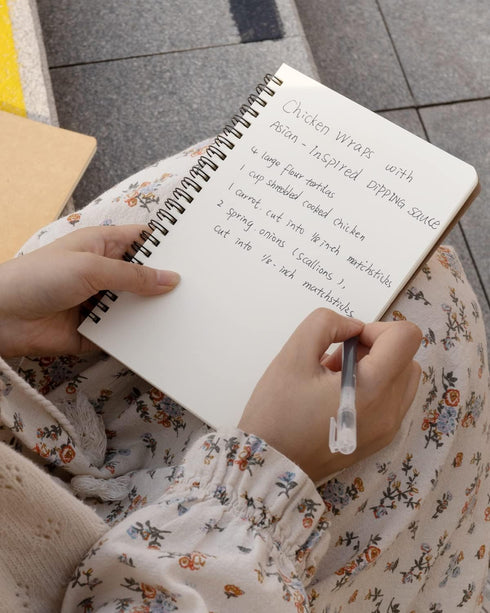 Chicken Wraps with
Asian-Inspired Dipping Sauce
4 large flour tortillas
1 cup shredded cooked chicken
1 carrot, cut into 1/8 inch matchsticks
2 spring onions (scallions),
cut into 1/8-inch matchsticks